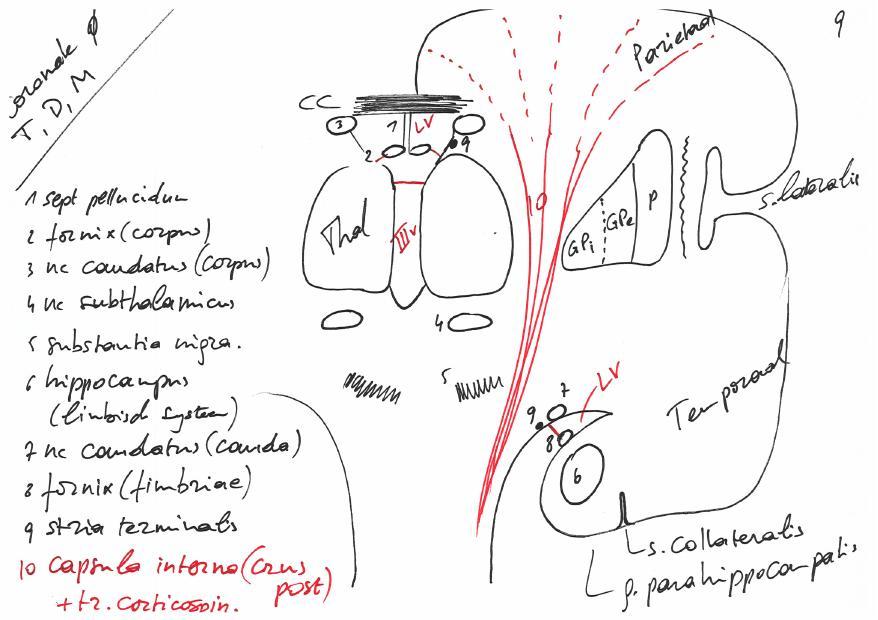 coronale ϕ
T, D, M
9
Parietaal
CC
3
1
LV
2
9
Thal
IIIv
10
GPi
GPe
P
s. lateralis
1 sept pellucidum
2 fornix (corpus)
3 nc caudatus (corpus)
4 nc subthalamicus
5 substantia nigra.
6 hippocampus
(limbisch systeem)
7 nc caudatus (cauda)
8 fornix (fimbriae)
9 stria terminalis
10 capsula interna (crus
post)
+ tr. corticospin.
4
5
7
LV
9
8
6
Temporaal
s. collateralis
g. parahippocampalis